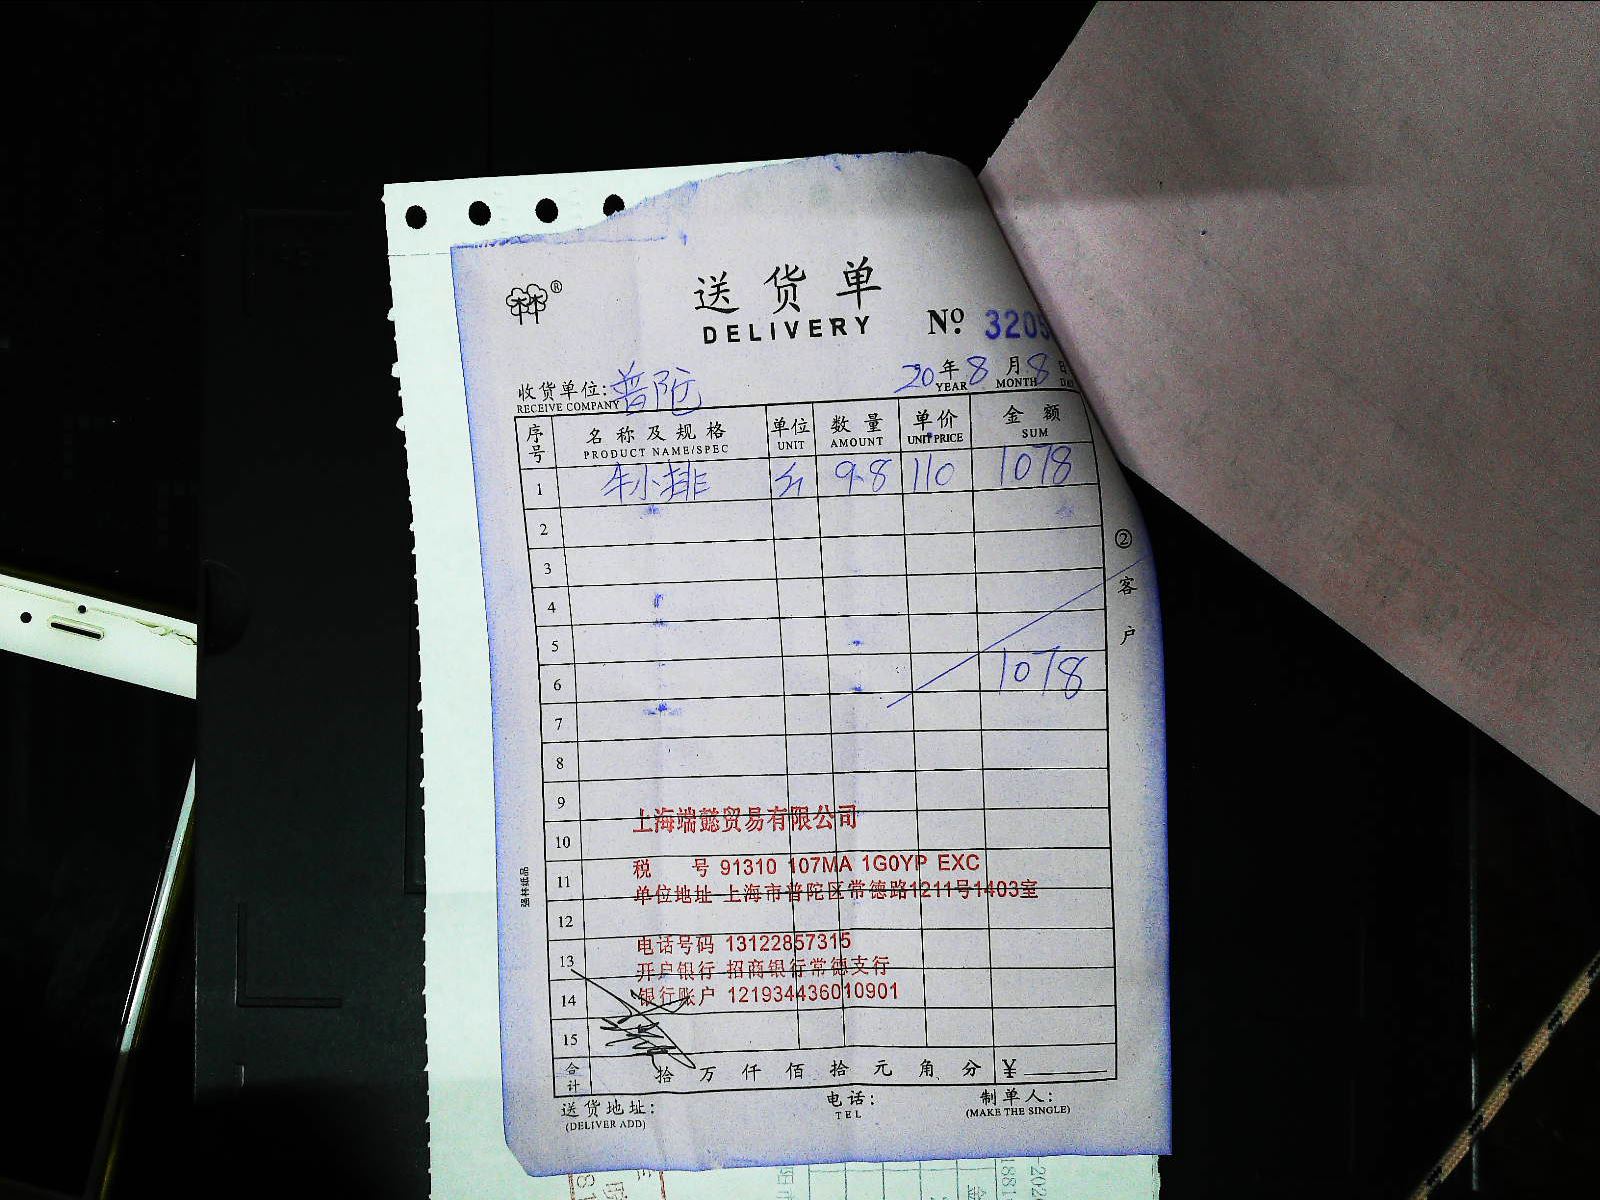 送货单
DELIVERY
№ 3205
收货单位:普陀
RECEIVE COMPANY
20年8月8日
YEAR MONTH
序号 名称及规格 单位 数量 单价 金额
PRODUCT NAME/SPEC UNIT AMOUNT UNIT PRICE SUM
1 牛小排 9.8 110 1078
2
3
4
5
6 1078
7
8
9
10
11
12
13
14
15
上海端懿贸易有限公司
税 号 91310 107MA 1G0YP EXC
单位地址 上海市普陀区常德路1211号1403室
电话号码 13122857315
开户银行 招商银行常德支行
银行账户 121934436010901
合计 拾 万 仟 佰 拾 元 角 分 ¥
送货地址: 电话: 制单人:
(DELIVER ADD) TEL (MAKE THE SINGLE)
②客户
强林纸品